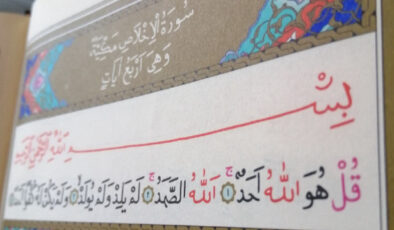 سُورَةُ الْإِخْلَاصِ مَكِّيَّةٌ
وَهِيَ أَرْبَعُ آيَاتٍ
بِسْــــمِ اللّٰهِ الرَّحْمٰنِ الرَّحِيمِ
قُلْ هُوَ اللّٰهُ أَحَدٌ ۚ ١ اَللّٰهُ الصَّمَدُ ۚ ٢ لَمْ يَلِدْ وَلَمْ يُولَدْ ٣ وَلَمْ يَكُنْ لَهُ كُفُوًا أَحَدٌ